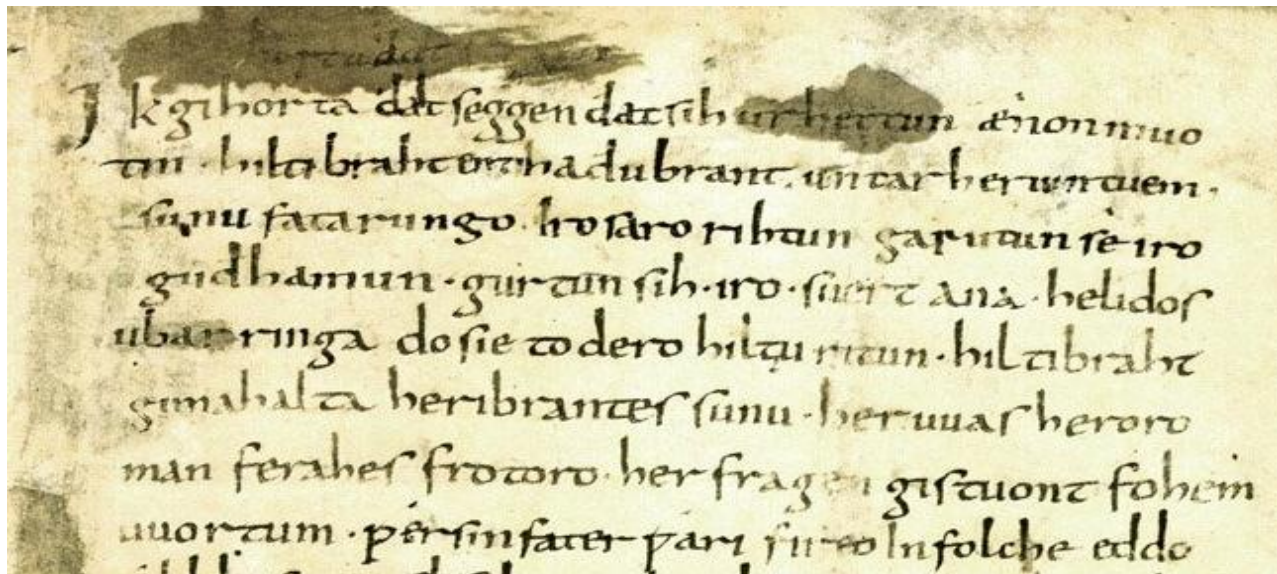 Ik gihorta dat seggen dat sih urhettun ænon muo
tin · hiltibraht enti hadubrant · untar heriun tuem ·
sunu fatarungo · iro saro rihtun garutun sè iro
gudhamun · gurtun sih · iro · suert ana · helidos
ubar ringa do sie to dero hiltu ritun · hiltibraht
gimahalta heribrantes sunu · her uuas heroro
man ferahes frotoro · her fragen gistuont fohem
uuortum · ƿer sin fater ƿari fireo In folche eddo